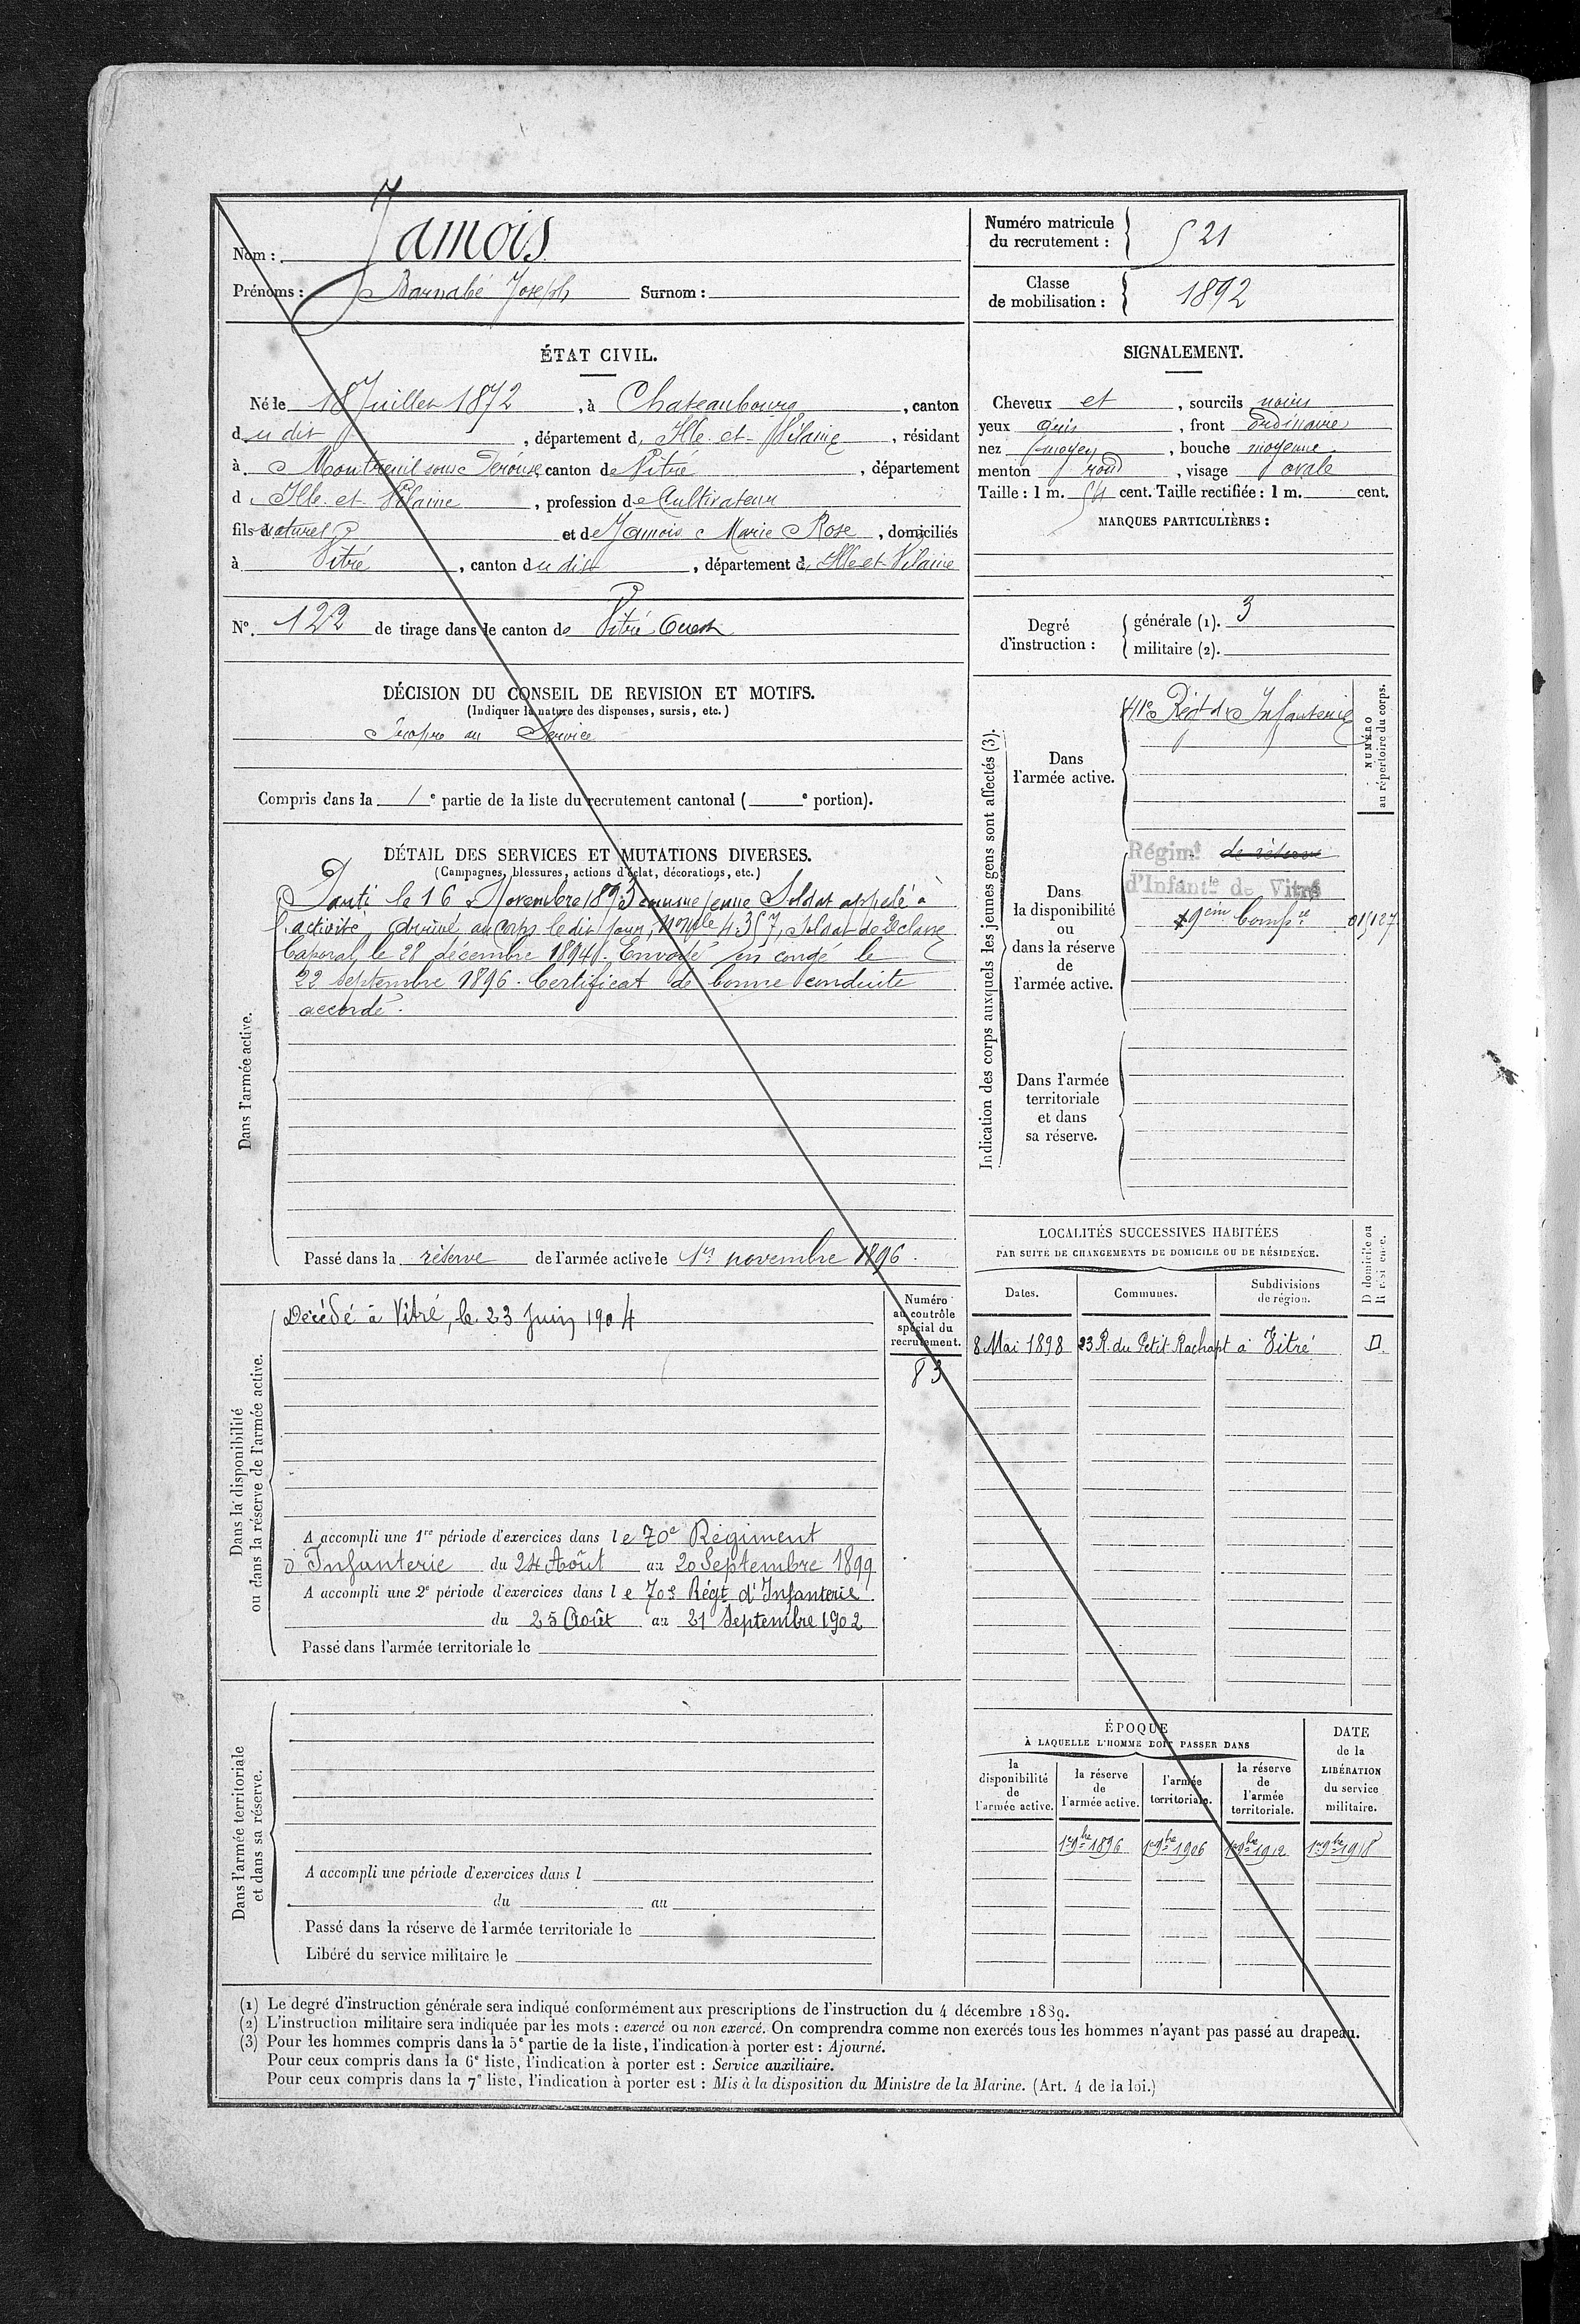 Nom : Jamois
Prénoms : Barnabé Joseph Surnom :
Numéro matricule du recrutement : 521
Classe de mobilisation : 1892
ÉTAT CIVIL.
Né le 18 Juillet 1872, à Chateaubourg, canton
du dit, département d'Ille-et-Vilaine, résidant
à Montreuil sous Pérouse, canton de Vitré, département
d'Ille-et-Vilaine, profession de Cultivateur
fils naturel et de Jamois Marie Rose, domiciliés
à Vitré, canton du dit, département d'Ille-et-Vilaine
N°. 122 de tirage dans le canton de Vitré Ouest
SIGNALEMENT.
Cheveux et, sourcils noirs
yeux gris, front ordinaire
nez moyen, bouche moyenne
menton rond, visage ovale
Taille : 1 m. 54 cent. Taille rectifiée : 1 m. cent.
MARQUES PARTICULIÈRES :
Degré d'instruction :
générale (1). 3
militaire (2).
DÉCISION DU CONSEIL DE REVISION ET MOTIFS.
(Indiquer la nature des dispenses, sursis, etc.)
Propre au Service
Compris dans la 1e partie de la liste du recrutement cantonal ( e portion).
DÉTAIL DES SERVICES ET MUTATIONS DIVERSES.
(Campagnes, blessures, actions d'éclat, décorations, etc.)
Dans l'armée active.
Parti le 16 Novembre 1893 comme jeune Soldat appelé à
l'activité, arrivé au corps le dit jour, No mle 4357, Soldat de 2e classe
Caporal le 28 décembre 1894. Envoyé en congé le
22 septembre 1896. Certificat de bonne conduite
accordé.
Passé dans la réserve de l'armée active le 1er novembre 1896.
Indication des corps auxquels les jeunes gens sont affectés (3).
NUMÉRO au répertoire du corps.
Dans l'armée active.
41e Régt d'Infanterie
Dans la disponibilité ou dans la réserve de l'armée active.
Régimt de réserve
d'Infantie de Vitré
19eme Compie 01527
Dans l'armée territoriale et dans sa réserve.
LOCALITÉS SUCCESSIVES HABITÉES
PAR SUITE DE CHANGEMENTS DE DOMICILE OU DE RÉSIDENCE.
Dates. Communes. Subdivisions de région. D domicile ou R résidence.
8 Mai 1898 23 R. du Petit Rachapt à Vitré D
Dans la disponibilité ou dans la réserve de l'armée active.
Numéro au contrôle spécial du recrutement.
83
Décédé à Vitré, le 23 Juin 1904
A accompli une 1re période d'exercices dans le 70e Régiment
d'Infanterie du 24 Août au 20 Septembre 1899
A accompli une 2e période d'exercices dans le 70e Régt d'Infanterie
du 25 Août au 21 Septembre 1902
Passé dans l'armée territoriale le
Dans l'armée territoriale et dans sa réserve.
A accompli une période d'exercices dans l
du au
Passé dans la réserve de l'armée territoriale le
Libéré du service militaire le
ÉPOQUE
À LAQUELLE L'HOMME DOIT PASSER DANS
la disponibilité de l'armée active.
la réserve de l'armée active.
l'armée territoriale.
la réserve de l'armée territoriale.
DATE de la LIBÉRATION du service militaire.
1er 9bre 1896 1er 9bre 1906 1er 9bre 1912 1er 9bre 1918
(1) Le degré d'instruction générale sera indiqué conformément aux prescriptions de l'instruction du 4 décembre 1889.
(2) L'instruction militaire sera indiquée par les mots : exercé ou non exercé. On comprendra comme non exercés tous les hommes n'ayant pas passé au drapeau.
(3) Pour les hommes compris dans la 5e partie de la liste, l'indication à porter est : Ajourné.
Pour ceux compris dans la 6e liste, l'indication à porter est : Service auxiliaire.
Pour ceux compris dans la 7e liste, l'indication à porter est : Mis à la disposition du Ministre de la Marine. (Art. 4 de la loi.)